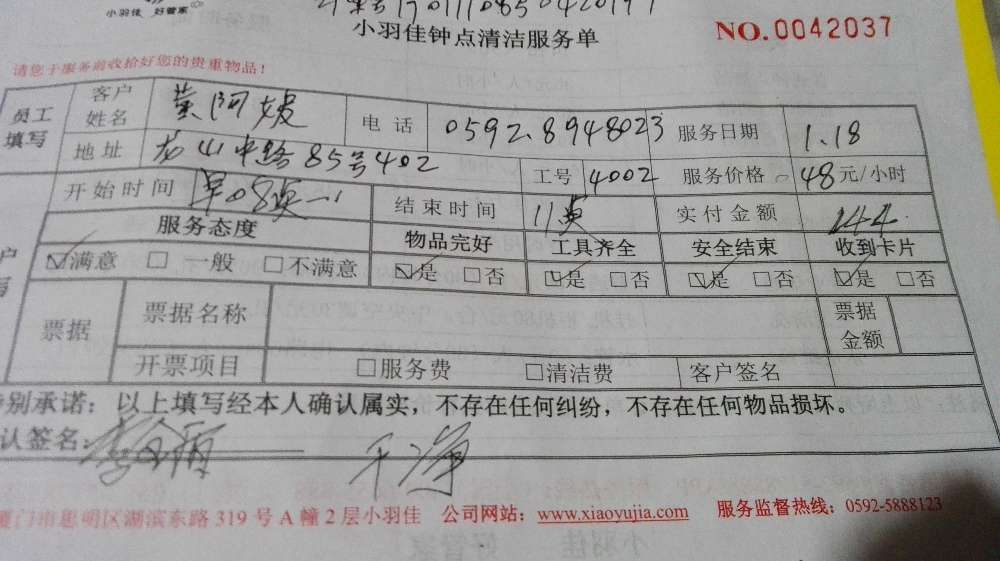 小羽佳 好管家
小羽佳钟点清洁服务单 NO.0042037
请您于服务前收拾好您的贵重物品!
员工填写 客户姓名 黄阿姨 电话 0592.8948023 服务日期 1.18
地址 路85号402 工号 4002 服务价格 48元/小时
开始时间 早08点 结束时间 11点 实付金额 144
服务态度 物品完好 工具齐全 安全结束 收到卡片
☑满意 □一般 □不满意 ☑是 □否 ☑是 □否 ☑是 □否 ☑是 □否
票据 票据名称 票据金额
开票项目 □服务费 □清洁费 客户签名
别承诺：以上填写经本人确认属实，不存在任何纠纷，不存在任何物品损坏。
认签名： 干净
厦门市思明区湖滨东路 319 号 A 幢 2 层小羽佳 公司网站：www.xiaoyujia.com 服务监督热线：0592-5888123